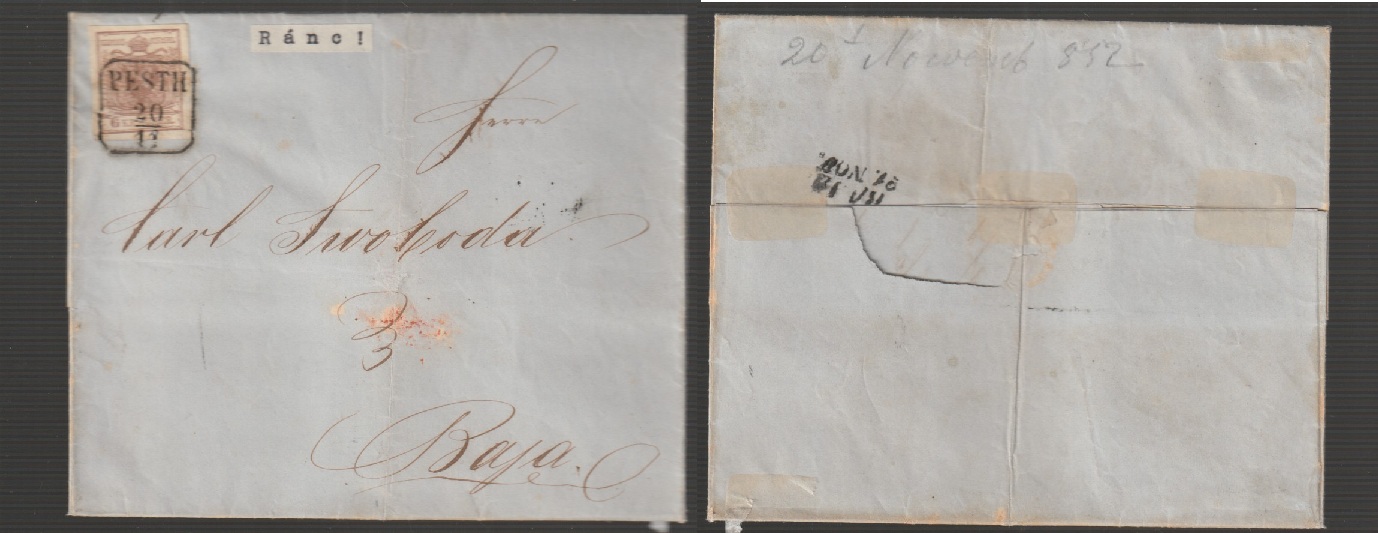 Ránc!
PESTH
20
Herrn
Carl Swoboda
Baja.
20 Novemb 852